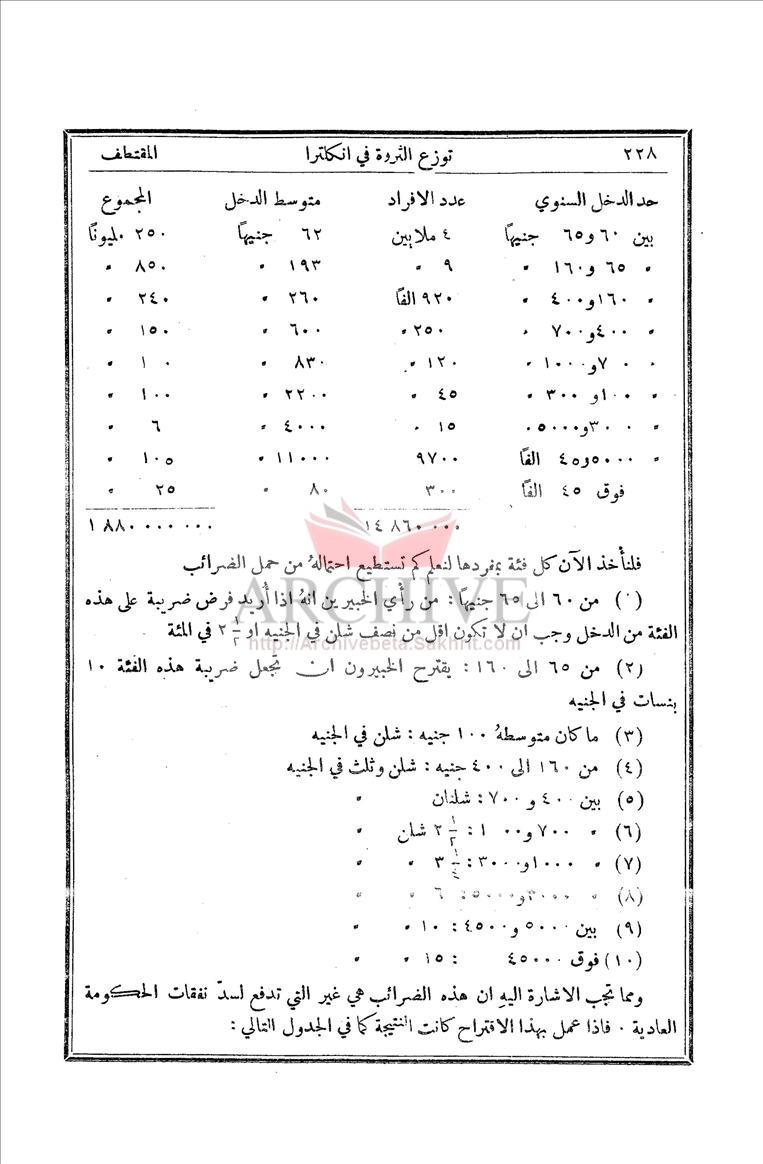 ٢٢٨ توزع الثروة في انكلترا المقتطف
حد الدخل السنوي عدد الافراد متوسط الدخل المجموع
بين ٦٠ و ٦٥ جنيهًا ٤ ملايين ٦٢ جنيهًا ٢٥٠ مليونًا
" ٦٥ و١٦٠ " ٩ " ١٩٣ " ٨٥٠ "
" ١٦٠ و٤٠٠ " ٩٢٠ الفًا ٢٦٠ " ٢٤٠ "
" ٤٠٠ و٧٠٠ " ٢٥٠ " ٦٠٠ " ١٥٠ "
" ٧٠٠ و١٠٠٠ " ١٢٠ " ٨٣٠ " ١٠٠ "
" ١٠٠٠ و ٣٠٠٠ " ٤٥ " ٢٢٠٠ " ١٠٠ "
" ٣٠٠٠ و٥٠٠٠ " ١٥ " ٤٠٠٠ " ٦ "
" ٥٠٠٠ و٤٥ الفًا ٩٧٠٠ ١١٠٠٠ " ١٠٥ "
فوق ٤٥ الفًا ٣٠٠ ٨٠ " ٢٥ "
١٤ ٨٦٠ ٠٠٠ ١ ٨٨٠ ٠٠٠ ٠٠٠
فلنأخذ الآن كل فئة بمفردها لنعلم كم تستطيع احتماله من حمل الضرائب
(١) من ٦٠ الى ٦٥ جنيهًا : من رأي الخبيرين انهُ اذا أُريد فرض ضريبة على هذه
الفئة من الدخل وجب ان لا تكون اقل من نصف شلن في الجنيه او ½ ٢ في المئة
(٢) من ٦٥ الى ١٦٠ : يقترح الخبيرون ان تجعل ضريبة هذه الفئة ١٠
بنسات في الجنيه
(٣) ما كان متوسطهُ ١٠٠ جنيه : شلن في الجنيه
(٤) من ١٦٠ الى ٤٠٠ جنيه : شلن وثلث في الجنيه
(٥) بين ٤٠٠ و ٧٠٠ : شلنان "
(٦) " ٧٠٠ و١٠٠٠ : ½ ٢ شلن "
(٧) " ١٠٠٠ و٣٠٠٠ : ¼ ٣ " "
(٨) " ٣٠٠٠ و٥٠٠٠ : ٦ " "
(٩) بين ٥٠٠٠ و ٤٥٠٠٠ : ١٠ " "
(١٠) فوق ٤٥٠٠٠ : ١٥ " "
ومما تجب الاشارة اليهِ ان هذه الضرائب هي غير التي تدفع لسدّ نفقات الحكومة
العادية ٠ فاذا عمل بهذا الاقتراح كانت النتيجة كما في الجدول التالي :
ARCHIVE
http://Archivebeta.Sakhrit.com